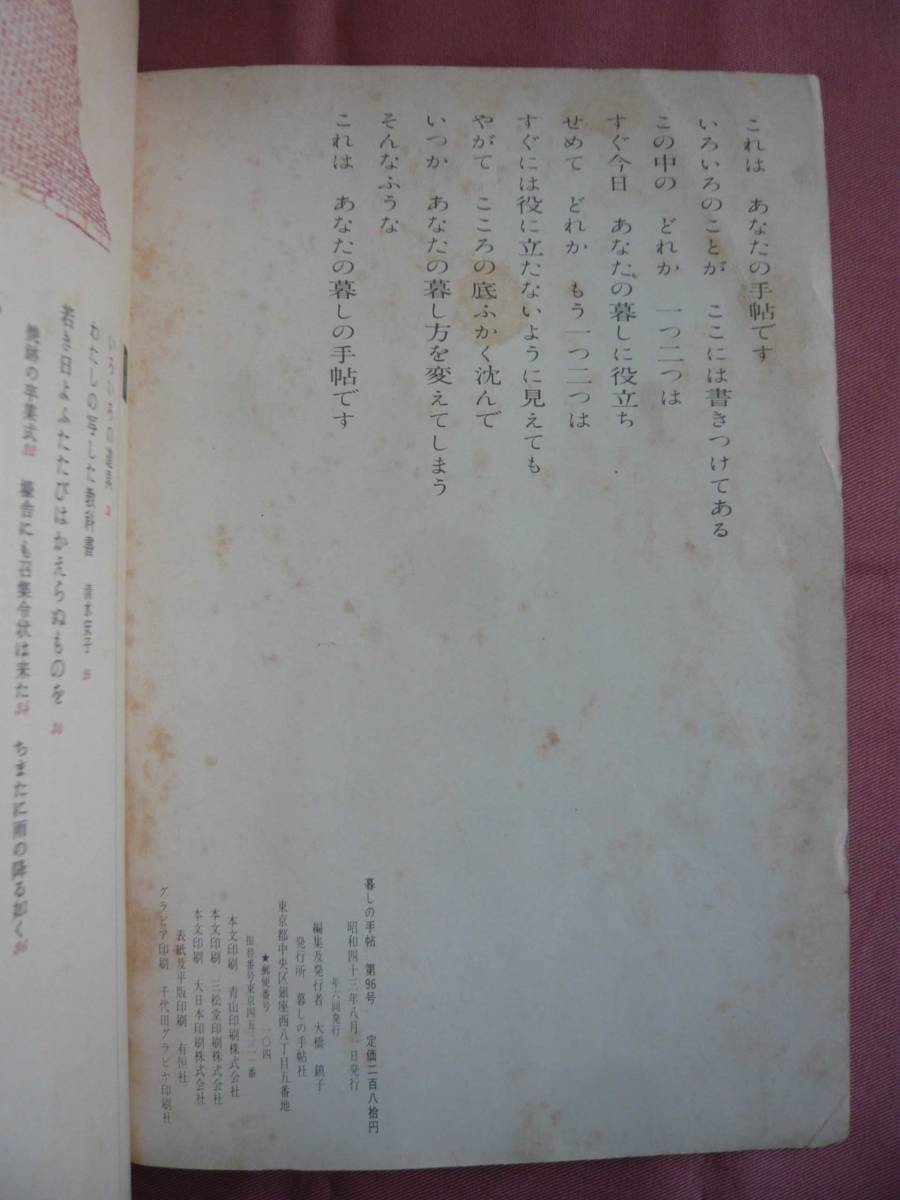 これは あなたの手帖です
いろいろのことが ここには書きつけてある
この中の どれか 一つ二つは
すぐ今日 あなたの暮しに役立ち
せめて どれか もう一つ二つは
すぐには役に立たないように見えても
やがて こころの底ふかく沈んで
いつか あなたの暮し方を変えてしまう
そんなふうな
これは あなたの暮しの手帖です
暮しの手帖 第96号 定価二百八拾円
昭和四十三年八月一日発行
年六回発行
編集及発行者 大橋 鎭子
発行所 暮しの手帖社
東京都中央区銀座西八丁目五番地
★郵便番号 一〇四
振替番号東京四五三二一番
本文印刷 青山印刷株式会社
本文印刷 三松堂印刷株式会社
本文印刷 大日本印刷株式会社
表紙及平版印刷 有恒社
グラビア印刷 千代田グラビヤ印刷社
わたしの写した教科書
若き日よふたたびはかえらぬものを 30
焼跡の卒業式 32 寄舎にも召集令状は来た 34 ちまたに雨の降る如く 36